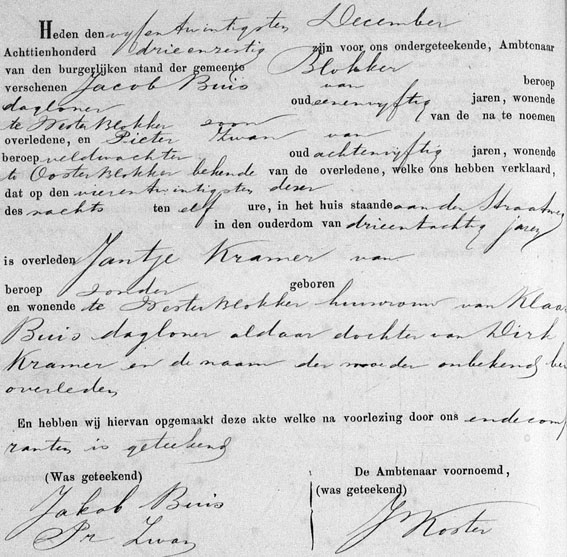 Heden den vyfentwintigsten December
Achttienhonderd drieenzestig zijn voor ons ondergeteekende, Ambtenaar
van den burgerlijken stand der gemeente Blokker
verschenen Jacob Buis van beroep
dagloner oud eenenvyftig jaren, wonende
te Westerblokker zoon van de na te noemen
overledene, en Pieter Zwan van
beroep veldwachter oud achtenvyftig jaren, wonende
te Oosterblokker bekende van de overledene, welke ons hebben verklaard,
dat op den vierentwintigsten dezer
des nachts ten elf ure, in het huis staande aan den Straatweg
in den ouderdom van drieentachtig jaren
is overleden Jantje Kramer van
beroep zonder geboren
en wonende te Westerblokker huisvrouw van Klaas
Buis dagloner aldaar dochter van Dirk
Kramer en de naam der moeder onbekend, bei
overleden
En hebben wij hiervan opgemaakt deze akte welke na voorlezing door ons en de com
ranten is geteekend
(Was geteekend) De Ambtenaar voornoemd,
(was geteekend)
Jakob Buis
Pr Zwan
J Koster